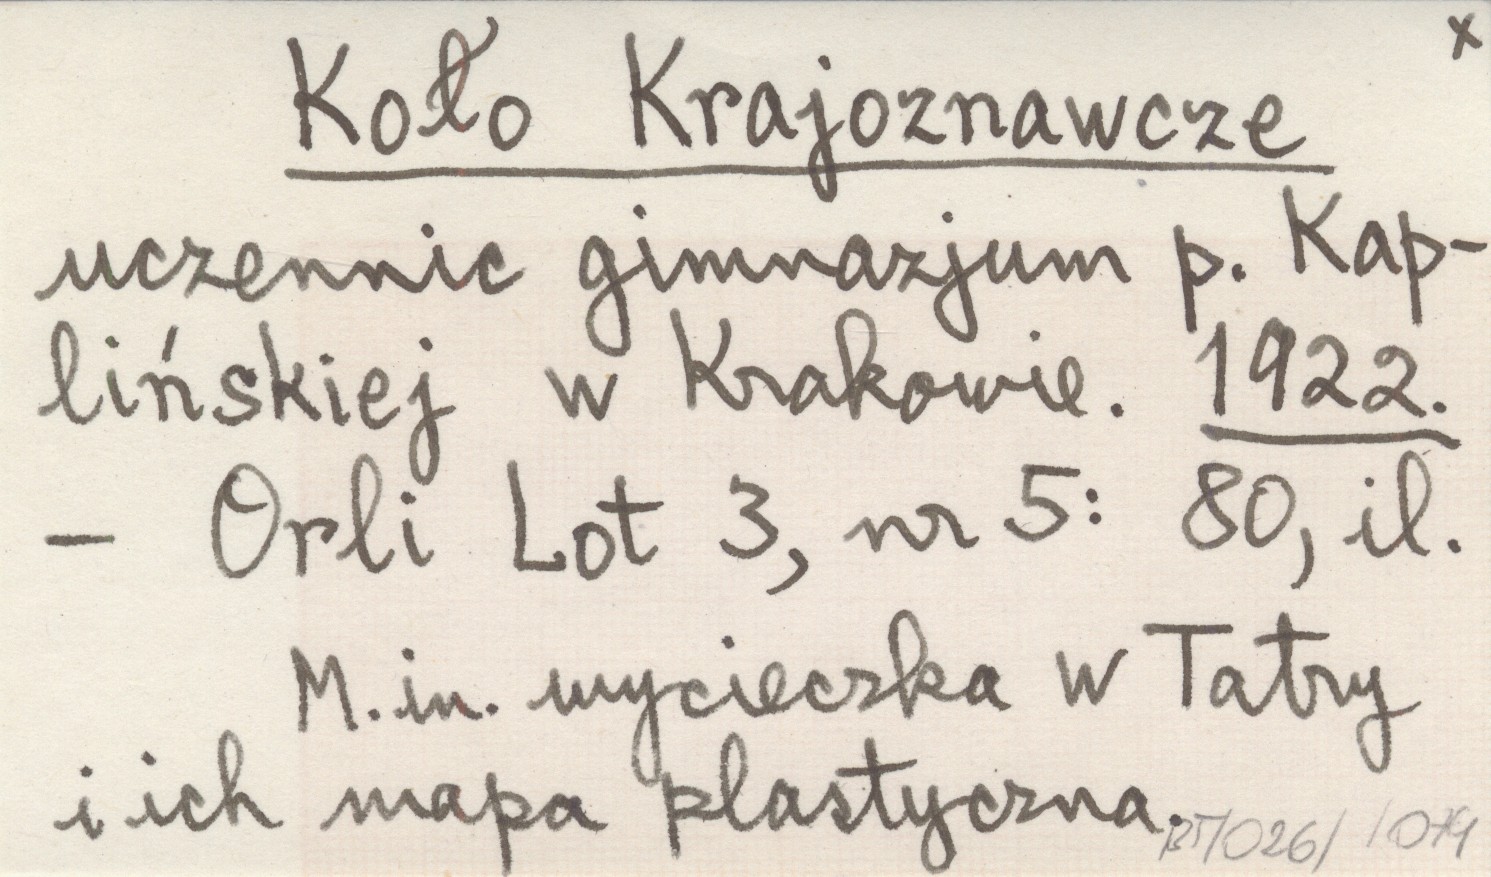 x
Koło Krajoznawcze
uczennic gimnazjum p. Kap-
lińskiej w Krakowie. 1922.
- Orli Lot 3, nr 5: 80, il.
M.in. wycieczka w Tatry
i ich mapa plastyczna.
/026/